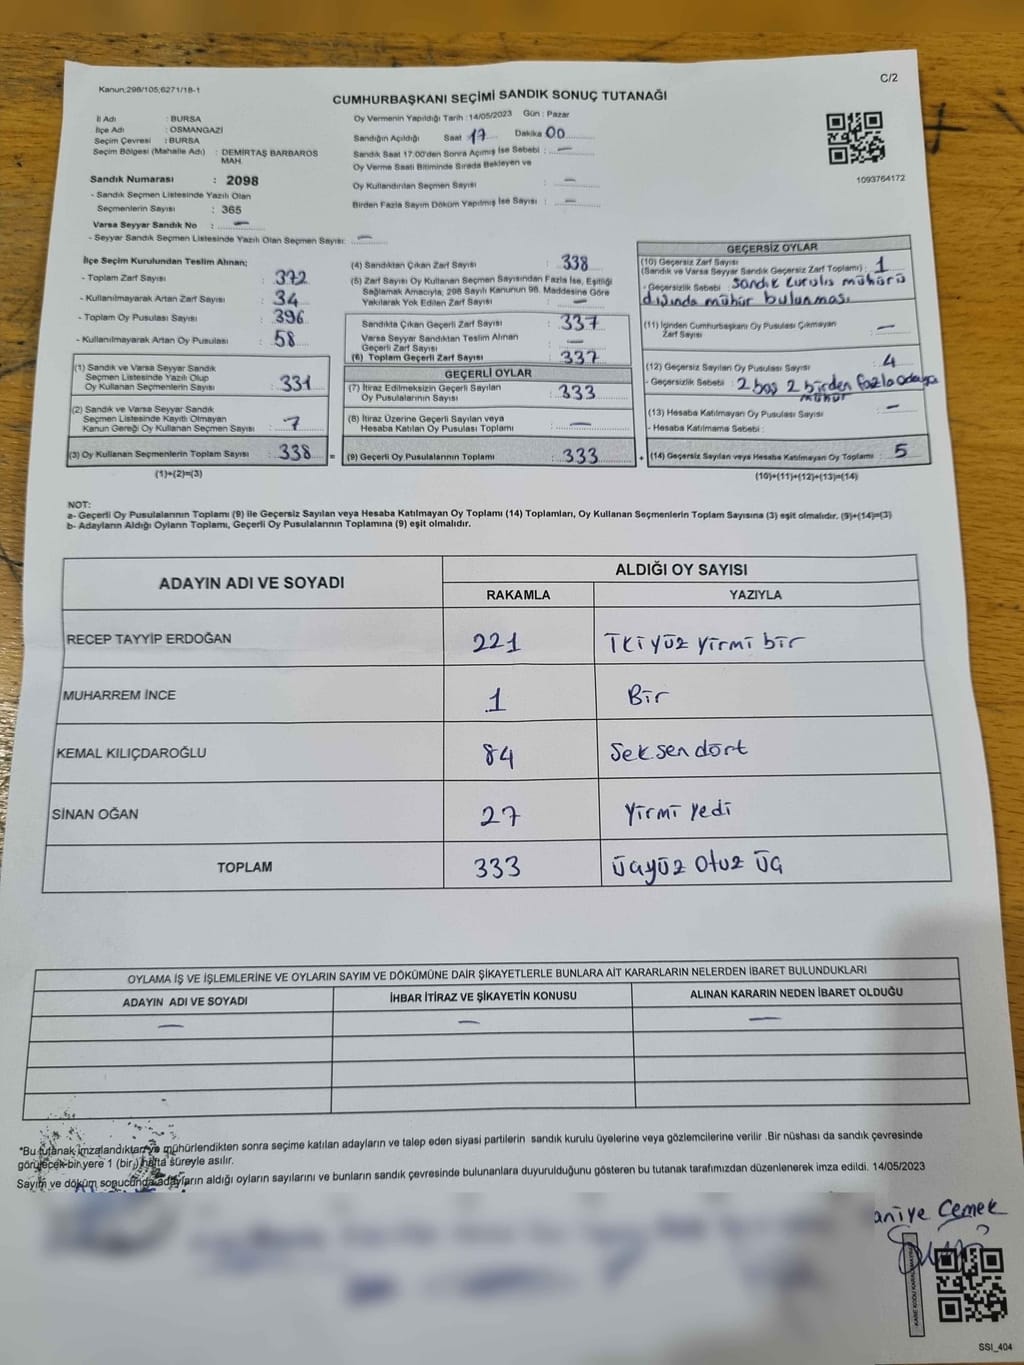 Kanun;298/105,6271/18-1
C/2
CUMHURBAŞKANI SEÇİMİ SANDIK SONUÇ TUTANAĞI
İl Adı : BURSA
İlçe Adı : OSMANGAZİ
Seçim Çevresi : BURSA
Seçim Bölgesi (Mahalle Adı) : DEMİRTAŞ BARBAROS
MAH.
Sandık Numarası : 2098
- Sandık Seçmen Listesinde Yazılı Olan
Seçmenlerin Sayısı : 365
Varsa Seyyar Sandık No : —
- Seyyar Sandık Seçmen Listesinde Yazılı Olan Seçmen Sayısı: —
Oy Vermenin Yapıldığı Tarih : 14/05/2023 Gün : Pazar
Sandığın Açıldığı Saat 17 Dakika 00
Sandık Saat 17:00'den Sonra Açımış İse Sebebi : —
Oy Verme Saati Bitiminde Sırada Bekleyen ve
Oy Kullandırılan Seçmen Sayısı : —
Birden Fazla Sayım Döküm Yapılmış İse Sayısı : —
1093764172
İlçe Seçim Kurulundan Teslim Alınan;
- Toplam Zarf Sayısı : 372
- Kullanılmayarak Artan Zarf Sayısı : 34
- Toplam Oy Pusulası Sayısı : 396
- Kullanılmayarak Artan Oy Pusulası : 58
(1) Sandık ve Varsa Seyyar Sandık
Seçmen Listesinde Yazılı Olup
Oy Kullanan Seçmenlerin Sayısı : 331
(2) Sandık ve Varsa Seyyar Sandık
Seçmen Listesinde Kayıtlı Olmayan
Kanun Gereği Oy Kullanan Seçmen Sayısı : 7
(3) Oy Kullanan Seçmenlerin Toplam Sayısı : 338
(1)+(2)=(3)
(4) Sandıktan Çıkan Zarf Sayısı : 338
(5) Zarf Sayısı Oy Kullanan Seçmen Sayısından Fazla İse, Eşitliği
Sağlamak Amacıyla, 298 Sayılı Kanunun 98. Maddesine Göre
Yakılarak Yok Edilen Zarf Sayısı : —
Sandıkta Çıkan Geçerli Zarf Sayısı : 337
Varsa Seyyar Sandıktan Teslim Alınan
Geçerli Zarf Sayısı : —
(6) Toplam Geçerli Zarf Sayısı : 337
GEÇERLİ OYLAR
(7) İtiraz Edilmeksizin Geçerli Sayılan
Oy Pusulasının Sayısı : 333
(8) İtiraz Üzerine Geçerli Sayılan veya
Hesaba Katılan Oy Pusulası Toplamı : —
= (9) Geçerli Oy Pusulalarının Toplamı : 333
GEÇERSİZ OYLAR
(10) Geçersiz Zarf Sayısı
(Sandık ve Varsa Seyyar Sandık Geçersiz Zarf Toplamı) : 1
- Geçersizlik Sebebi : Sandık kurulu mührü
dışında mühür bulunması
(11) İçinden Cumhurbaşkanı Oy Pusulası Çıkmayan
Zarf Sayısı : —
(12) Geçersiz Sayılan Oy Pusulası Sayısı : 4
- Geçersizlik Sebebi : 2 boş 2 birden fazla adaya
mühür
(13) Hesaba Katılmayan Oy Pusulası Sayısı : —
- Hesaba Katılmama Sebebi :
+ (14) Geçersiz Sayılan veya Hesaba Katılmayan Oy Toplamı : 5
(10)+(11)+(12)+(13)=(14)
NOT:
a- Geçerli Oy Pusulalarının Toplamı (9) ile Geçersiz Sayılan veya Hesaba Katılmayan Oy Toplamı (14) Toplamları, Oy Kullanan Seçmenlerin Toplam Sayısına (3) eşit olmalıdır. (9)+(14)=(3)
b- Adayların Aldığı Oyların Toplamı, Geçerli Oy Pusulalarının Toplamına (9) eşit olmalıdır.
ADAYIN ADI VE SOYADI ALDIĞI OY SAYISI
RAKAMLA YAZIYLA
RECEP TAYYİP ERDOĞAN 221 İkiyüz yirmi bir
MUHARREM İNCE 1 Bir
KEMAL KILIÇDAROĞLU 84 Seksen dört
SİNAN OĞAN 27 Yirmi yedi
TOPLAM 333 Üçyüz otuz üç
OYLAMA İŞ VE İŞLEMLERİNE VE OYLARIN SAYIM VE DÖKÜMÜNE DAİR ŞİKAYETLERLE BUNLARA AİT KARARLARIN NELERDEN İBARET BULUNDUKLARI
ADAYIN ADI VE SOYADI İHBAR İTİRAZ VE ŞİKAYETİN KONUSU ALINAN KARARIN NEDEN İBARET OLDUĞU
— — —
*Bu tutanak imzalandıktan ve mühürlendikten sonra seçime katılan adayların ve talep eden siyasi partilerin sandık kurulu üyelerine veya gözlemcilerine verilir .Bir nüshası da sandık çevresinde
görülecek bir yere 1 (bir) hafta süreyle asılır.
Sayım ve döküm sonucunda adayların aldığı oyların sayılarını ve bunların sandık çevresinde bulunanlara duyurulduğunu gösteren bu tutanak tarafımızdan düzenlenerek imza edildi. 14/05/2023
aniye Çemek
SSI_404